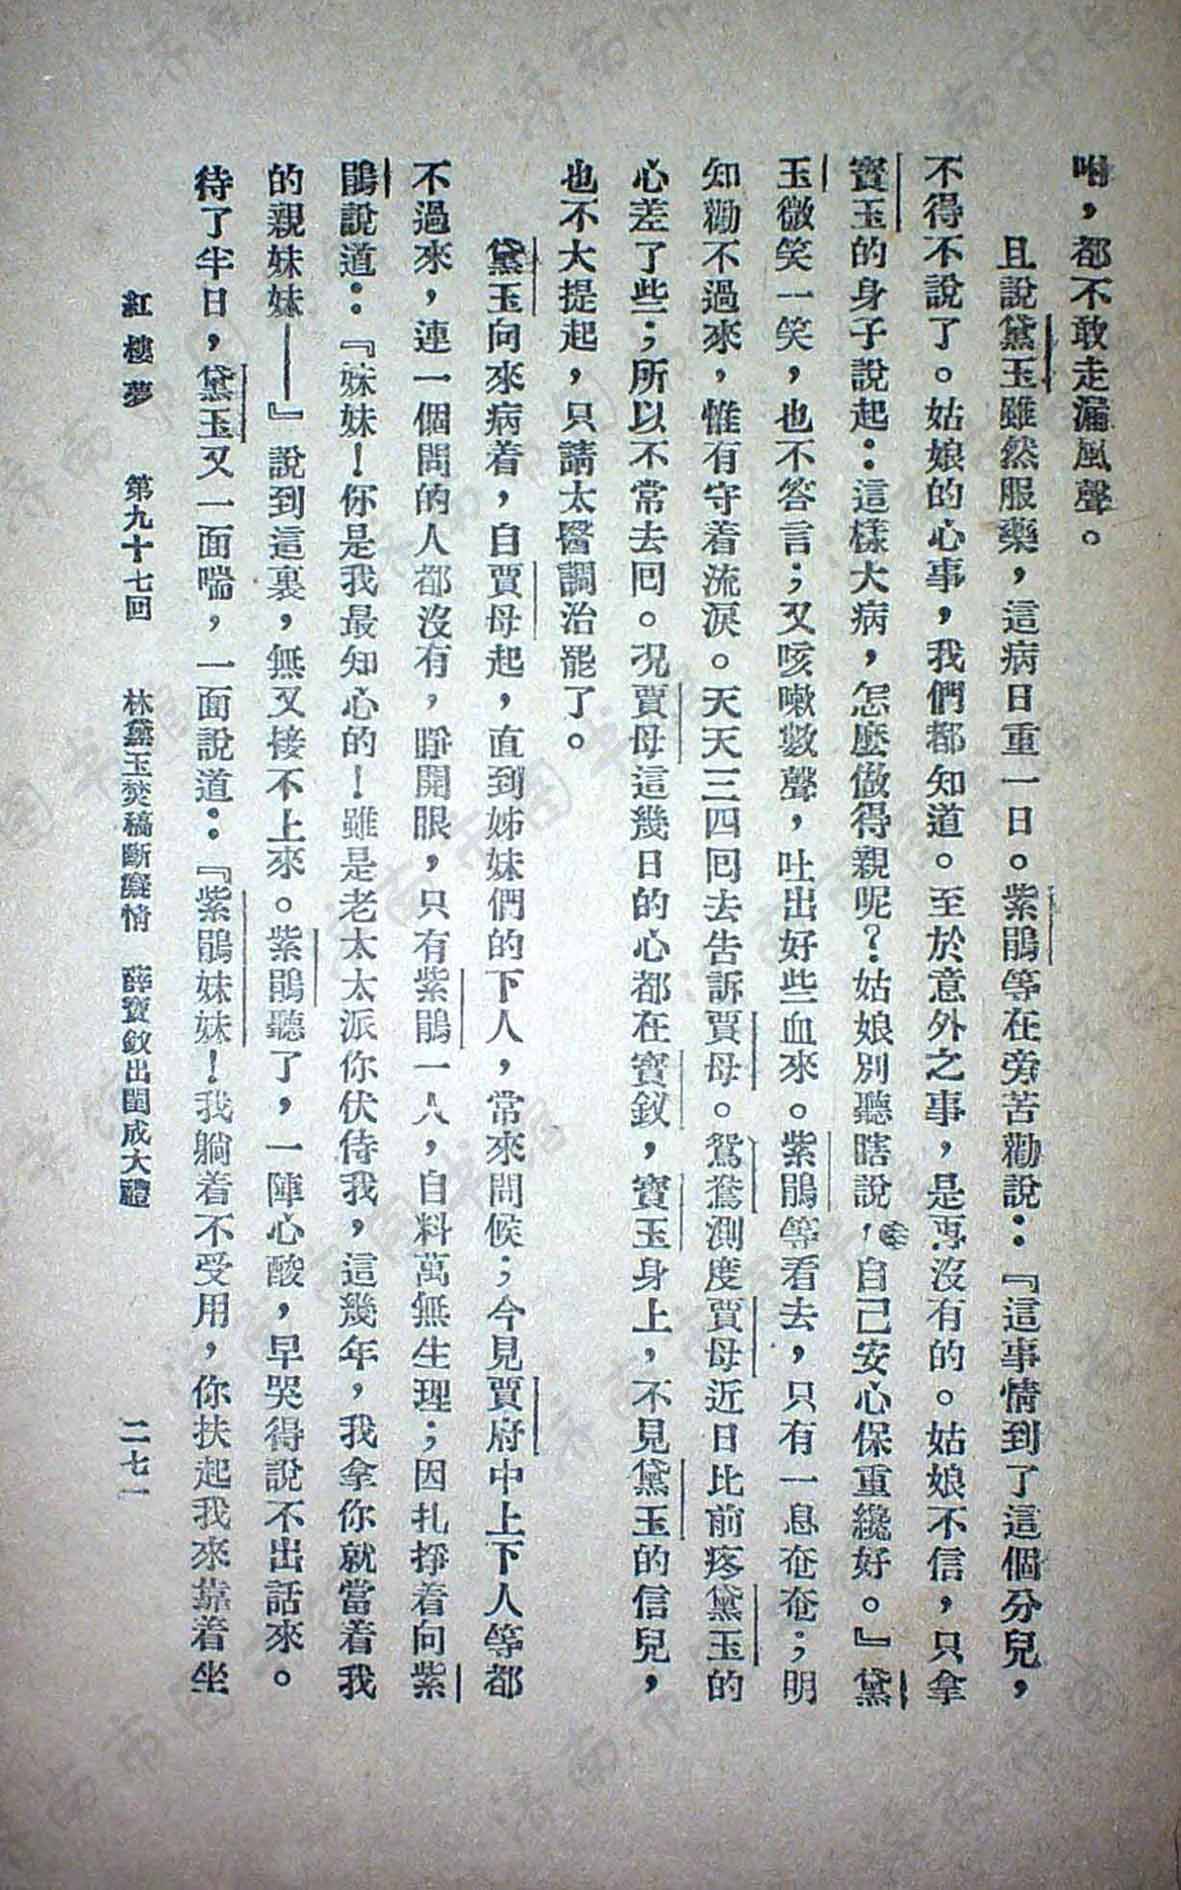 咐，都不敢走漏風聲。
且說黛玉雖然服藥，這病日重一日。紫鵑等在旁苦勸說：『這事情到了這個分兒，
不得不說了。姑娘的心事，我們都知道。至於意外之事，是再沒有的。姑娘不信，只拿
寶玉的身子說起：這樣大病，怎麼做得親呢？姑娘別聽瞎說，自己安心保重纔好。』黛
玉微笑一笑，也不答言；又咳嗽數聲，吐出好些血來。紫鵑等看去，只有一息奄奄；明
知勸不過來，惟有守着流淚。天天三四回去告訴賈母。鴛鴦測度賈母近日比前疼黛玉的
心差了些；所以不常去回。况賈母這幾日的心都在寶釵，寶玉身上，不見黛玉的信兒，
也不大提起，只請太醫調治罷了。
黛玉向來病着，自賈母起，直到姊妹們的下人，常來問候；今見賈府中上下人等都
不過來，連一個問的人都沒有，睜開眼，只有紫鵑一人，自料萬無生理；因扎掙着向紫
鵑說道：『妹妹！你是我最知心的！雖是老太太派你伏侍我，這幾年，我拿你就當着我
的親妹妹——』說到這裏，氣又接不上來。紫鵑聽了，一陣心酸，早哭得說不出話來。
待了半日，黛玉又一面喘，一面說道：『紫鵑妹妹！我躺着不受用，你扶起我來靠着坐
紅樓夢 第九十七回 林黛玉焚稿斷癡情 薛寶釵出閨成大禮 二七一